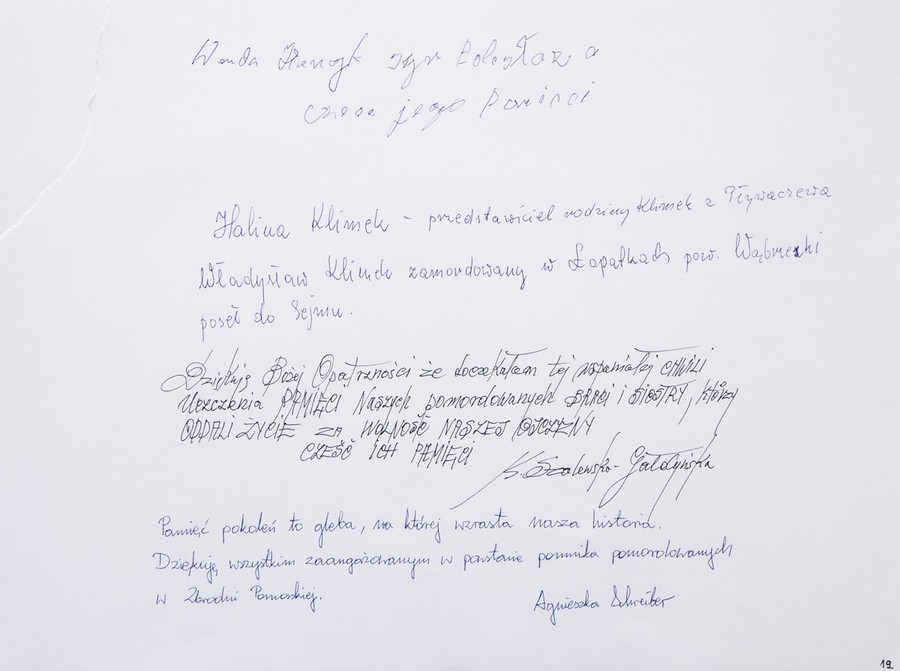 Wenda Henryk syn Bolesława
cześć jego Pamięci
Halina Klimek - przedstawiciel rodziny Klimek z Pływaczewa
Władysław Klimek zamordowany w Łopatkach pow. Wąbrzeski
poseł do Sejmu.
Dziękuję Bożej Opatrzności że doczekałam tej wspaniałej CHWILI
Uczczenia PAMIĘCI Naszych pomordowanych BRACI i SIOSTRY, którzy
ODDALI ŻYCIE ZA WOLNOŚĆ NASZEJ OJCZYZNY
CZEŚĆ ICH PAMIĘCI
K. Szalewska-Gałdyńska
Pamięć pokoleń to gleba, na której wzrasta nasza historia.
Dziękuję wszystkim zaangażowanym w powstanie pomnika pomordowanych
w Zbrodni Pomorskiej.
Agnieszka Schreiber
19.